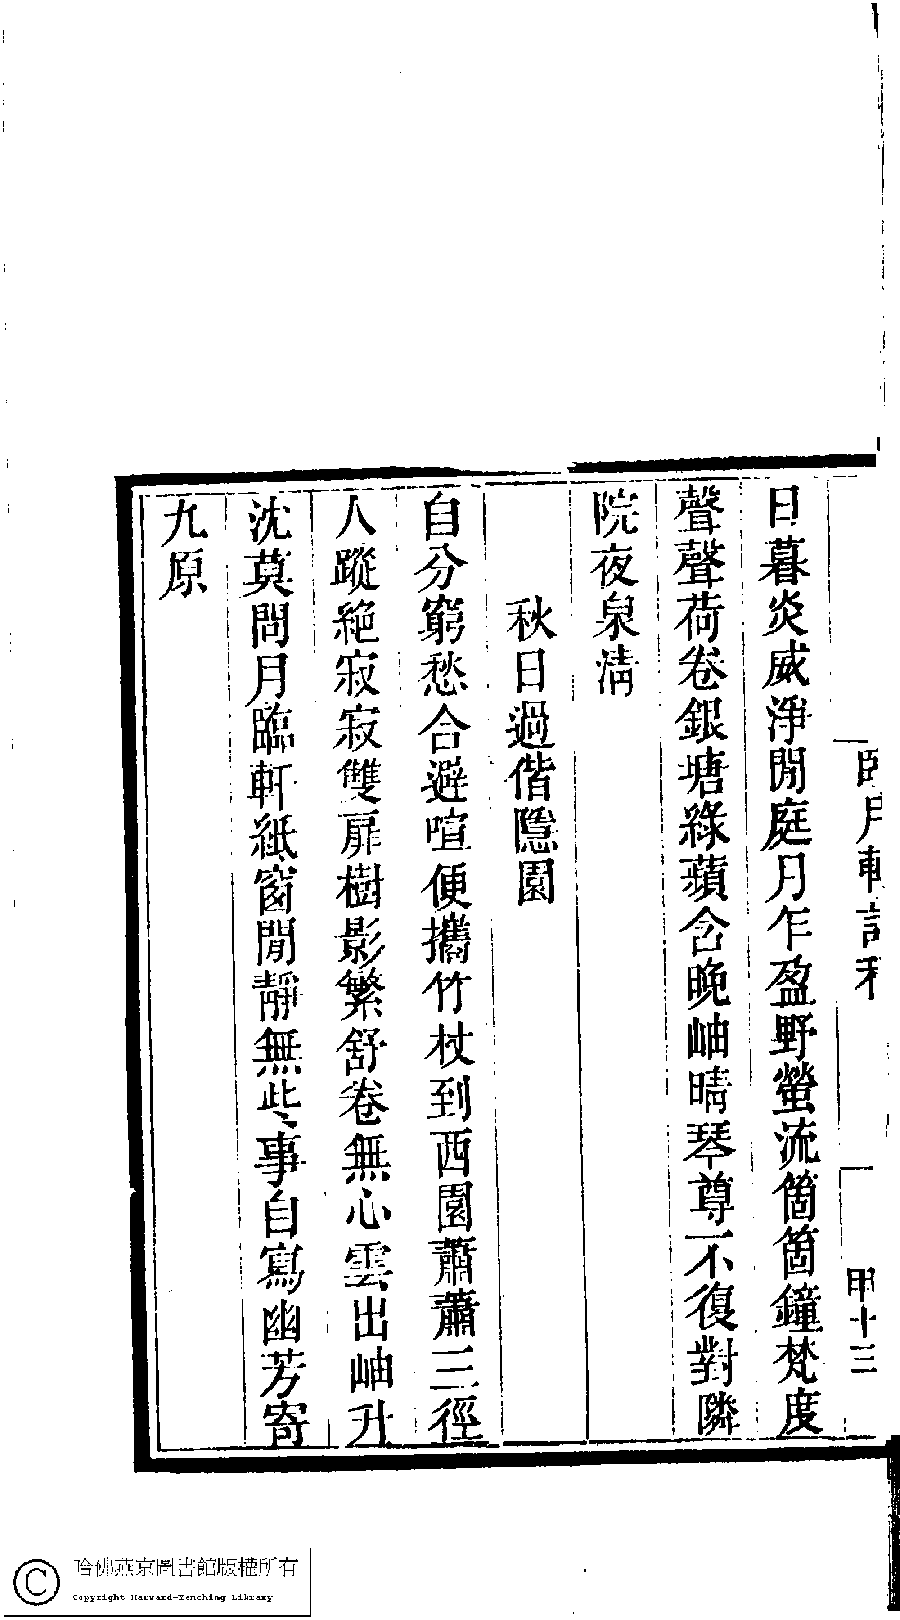 日暮炎威淨閒庭月乍盈野螢流箇箇鐘梵度
聲聲荷卷銀塘綠蘋含晚岫晴琴尊不復對隣
院夜泉淸
秋日過偕隱園
自分窮愁合避喧便攜竹杖到西園蕭蕭三徑
人蹤絶寂寂雙扉樹影繁舒卷無心雲出岫升
沈莫問月臨軒紙窗閒靜無些事自寫幽芳寄
九原
臥月軒詩稿
甲十三
哈佛燕京圖書館版權所有
Copyright Harvard-Yenching Library